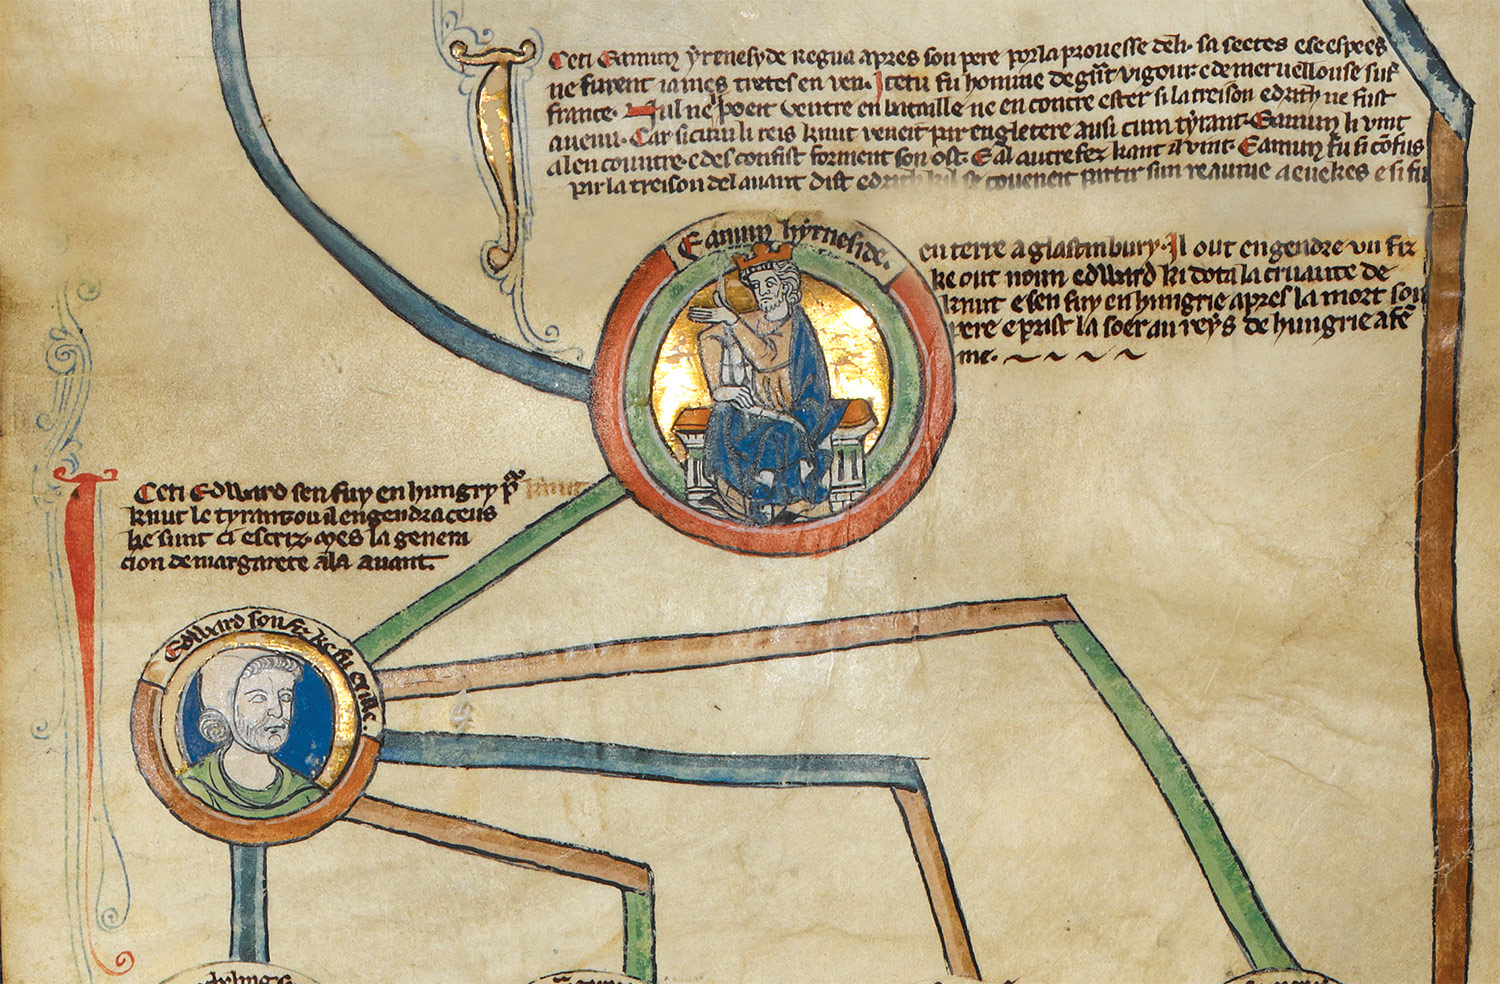 Ceti Eamun yrenesyde regna apres son pere por la prouesse de li. sa sectes e se espees
ne furent iames tretes en ven. Icetu fu homme de gnt vigour e de merueillouse sur
france. Nul ne poeit ventre en bataille ne en contre ester si la treison edrich ne fust
auenu. Car si cum li reis knut veneit par engletere ausi cum tyrant. Eamun li vint
al encountre. e desconfist forment son ost. E al autre fez kant il vint. Eamun fu si cofus
par la treison del auant dist edrich kil se coueneit partir sun reaume a euekes e si fu
Eamun hyrneside.
en terre a glastinbury. Il out engendre vn fiz
ke out noun edward ki dota la cruaute de
knut e sen fuy en hungrie apres la mort son
pere e prist la soer au reys de hungrie a fe
me.
Ceti Edward sen fuy en hungry pr knut
knut le tyrant. ou il engendra ceus
ke sunt ci escriz. mes la genera
cion de margarete a la auant.
Edward son fiz ke fu exille.